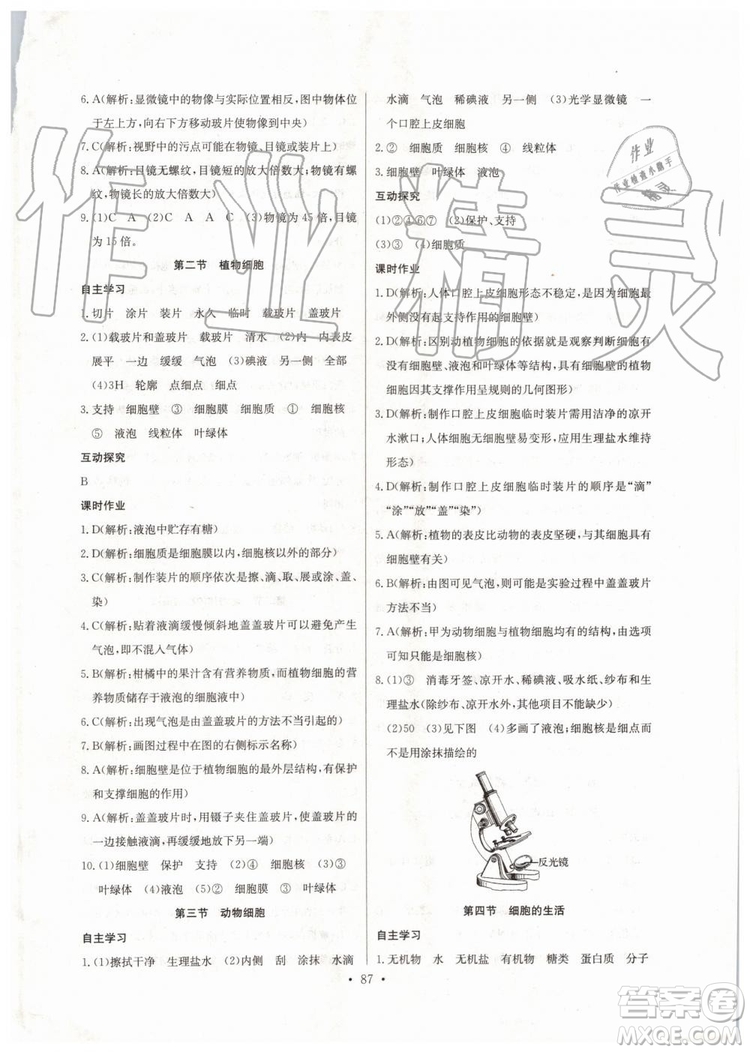 6. A(解析:显微镜中的物像与实际位置相反,图中物体位
于左上方,向右下方移动玻片使物像到中央)
7. C(解析:视野中的污点可能在物镜、目镜或装片上)
8. A(解析:目镜无螺纹,目镜短的放大倍数大;物镜有螺
纹,物镜长的放大倍数大)
9. (1)C A A C (2)A (3)物镜为 45 倍,目镜
为 15 倍。
第二节 植物细胞
自主学习
1. 切片 涂片 装片 永久 临时 载玻片 盖玻片
2. (1)载玻片和盖玻片 载玻片 清水 (2)内 内表皮
展平 一边 缓缓 气泡 (3)碘液 另一侧 全部
(4)3H 轮廓 点细点 细点
3. 支持 细胞壁 ③ 细胞膜 细胞质 ① 细胞核
⑤ 液泡 线粒体 叶绿体
互动探究
B
课时作业
1. D(解析:液泡中贮存有糖)
2. D(解析:细胞质是细胞膜以内、细胞核以外的部分)
3. A(解析:制作装片的顺序依次是擦、滴、取、展或涂、盖、
染)
4. C(解析:贴着液滴缓慢倾斜地盖盖玻片可以防止产生
气泡,即不混入气体)
5. B(解析:柑橘中的果汁含有营养物质,而植物细胞的营
养物质储存于液泡的细胞液中)
6. C(解析:出现气泡是由盖盖玻片的方法不当引起的)
7. B(解析:画图过程中在图的右侧指示名称)
8. A(解析:细胞壁是位于植物细胞的最外层结构,有保护
和支撑细胞的作用)
9. A(解析:盖盖玻片时,用镊子夹住盖玻片,使盖玻片的
一边接触液滴,再缓缓地放下另一端)
10. (1)细胞壁 保护 支持 (2)④ 细胞核 (3)③
叶绿体 (4)⑤ 液泡 (5)② 细胞膜 (6)③ 叶绿体
第三节 动物细胞
自主学习
1. (1)擦拭干净 生理盐水 (2)内侧 刮 涂抹 水滴
水滴 气泡 稀碘液 另一侧 (3)光学显微镜 一
个口腔上皮细胞
2. ② ① 细胞质 细胞核 ④ 线粒体
3. 细胞壁 叶绿体 液泡
互动探究
(1)①②④⑥⑦ (2)保护、支持
(3)③ (4)细胞质
课时作业
1. D(解析:人体口腔上皮细胞形态不稳定,是因为细胞最
外侧没有起支持作用的细胞壁)
2. D(解析:区别动植物细胞的依据就是观察判断细胞有
没有细胞壁、液泡和叶绿体等结构,具有细胞壁的植物
细胞因其支撑作用呈规则的几何图形)
3. D(解析:制作口腔上皮细胞临时装片需用洁净的凉开
水漱口;人体细胞无细胞壁易变形,应用生理盐水维持
形态)
4. D(解析:制作口腔上皮细胞临时装片的顺序是“滴”
“涂”“放”“盖”“染”)
5. A(解析:植物的表皮比动物的表皮坚硬,与具有细胞
壁有关)
6. D(解析:由图可见气泡,应是实验过程中盖盖玻片
方法不当)
7. A(解析:甲为动物细胞与植物细胞均有的结构,由此
可知只能是细胞核)
8. (1)③ 消毒牙签、凉开水、稀碘液、吸水纸、纱布和生
理盐水(除纱布、凉开水外,其他不能缺少)
(2)50 (3)见下图 (4)多画了液泡;细胞核是细点而
不是用涂抹描绘的
反光镜
第四节 细胞的生活
自主学习
1. 无机物 水 无机盐 有机物 糖类 蛋白质 分子
· 87 ·
作业精灵
作业
作业检查小助手
精灵
答案圈
MXQE.COM